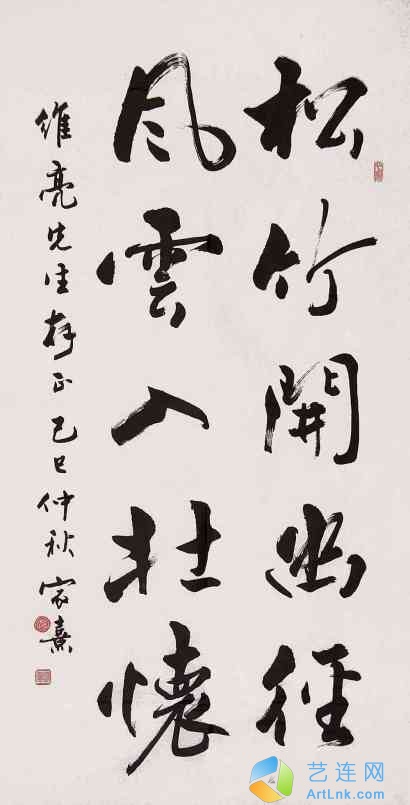 松竹開幽徑
風雲入壯懷
維亮先生存正己巳仲秋家熹
艺连网
ArtLnk.com